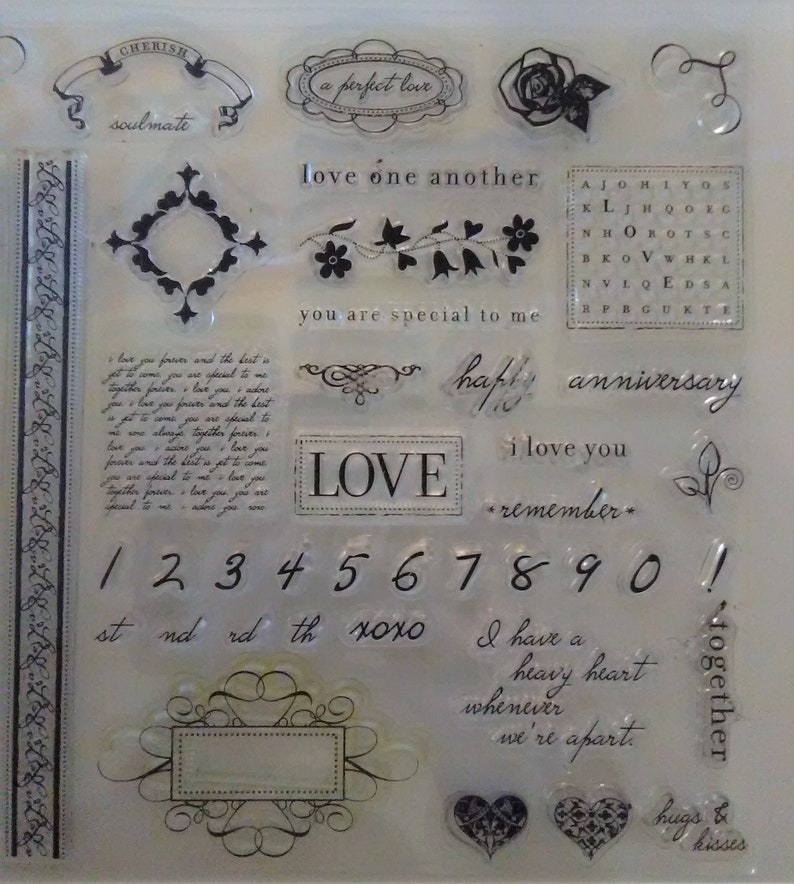 CHERISH
soulmate
a perfect love
love one another
A J O H I Y O S
K L J H Q O E G
N H O R O T S C
B K O V W H K L
N V L Q E D S A
R P B G U K T E
you are special to me
i love you forever and the best is
yet to come. you are special to me.
together forever. i love you. i adore
you. i love you forever and the best
is yet to come. you are special to
me. xoxo. always. together forever. i
love you. i adore you. i love you
forever and the best is yet to come.
you are special to me. i love you.
together forever. i love you. you are
special to me. i adore you. xoxo
happy
anniversary
LOVE
i love you
*remember*
1 2 3 4 5 6 7 8 9 0 !
st nd rd th xoxo
I have a
heavy heart
whenever
we're apart.
together
hugs &
kisses